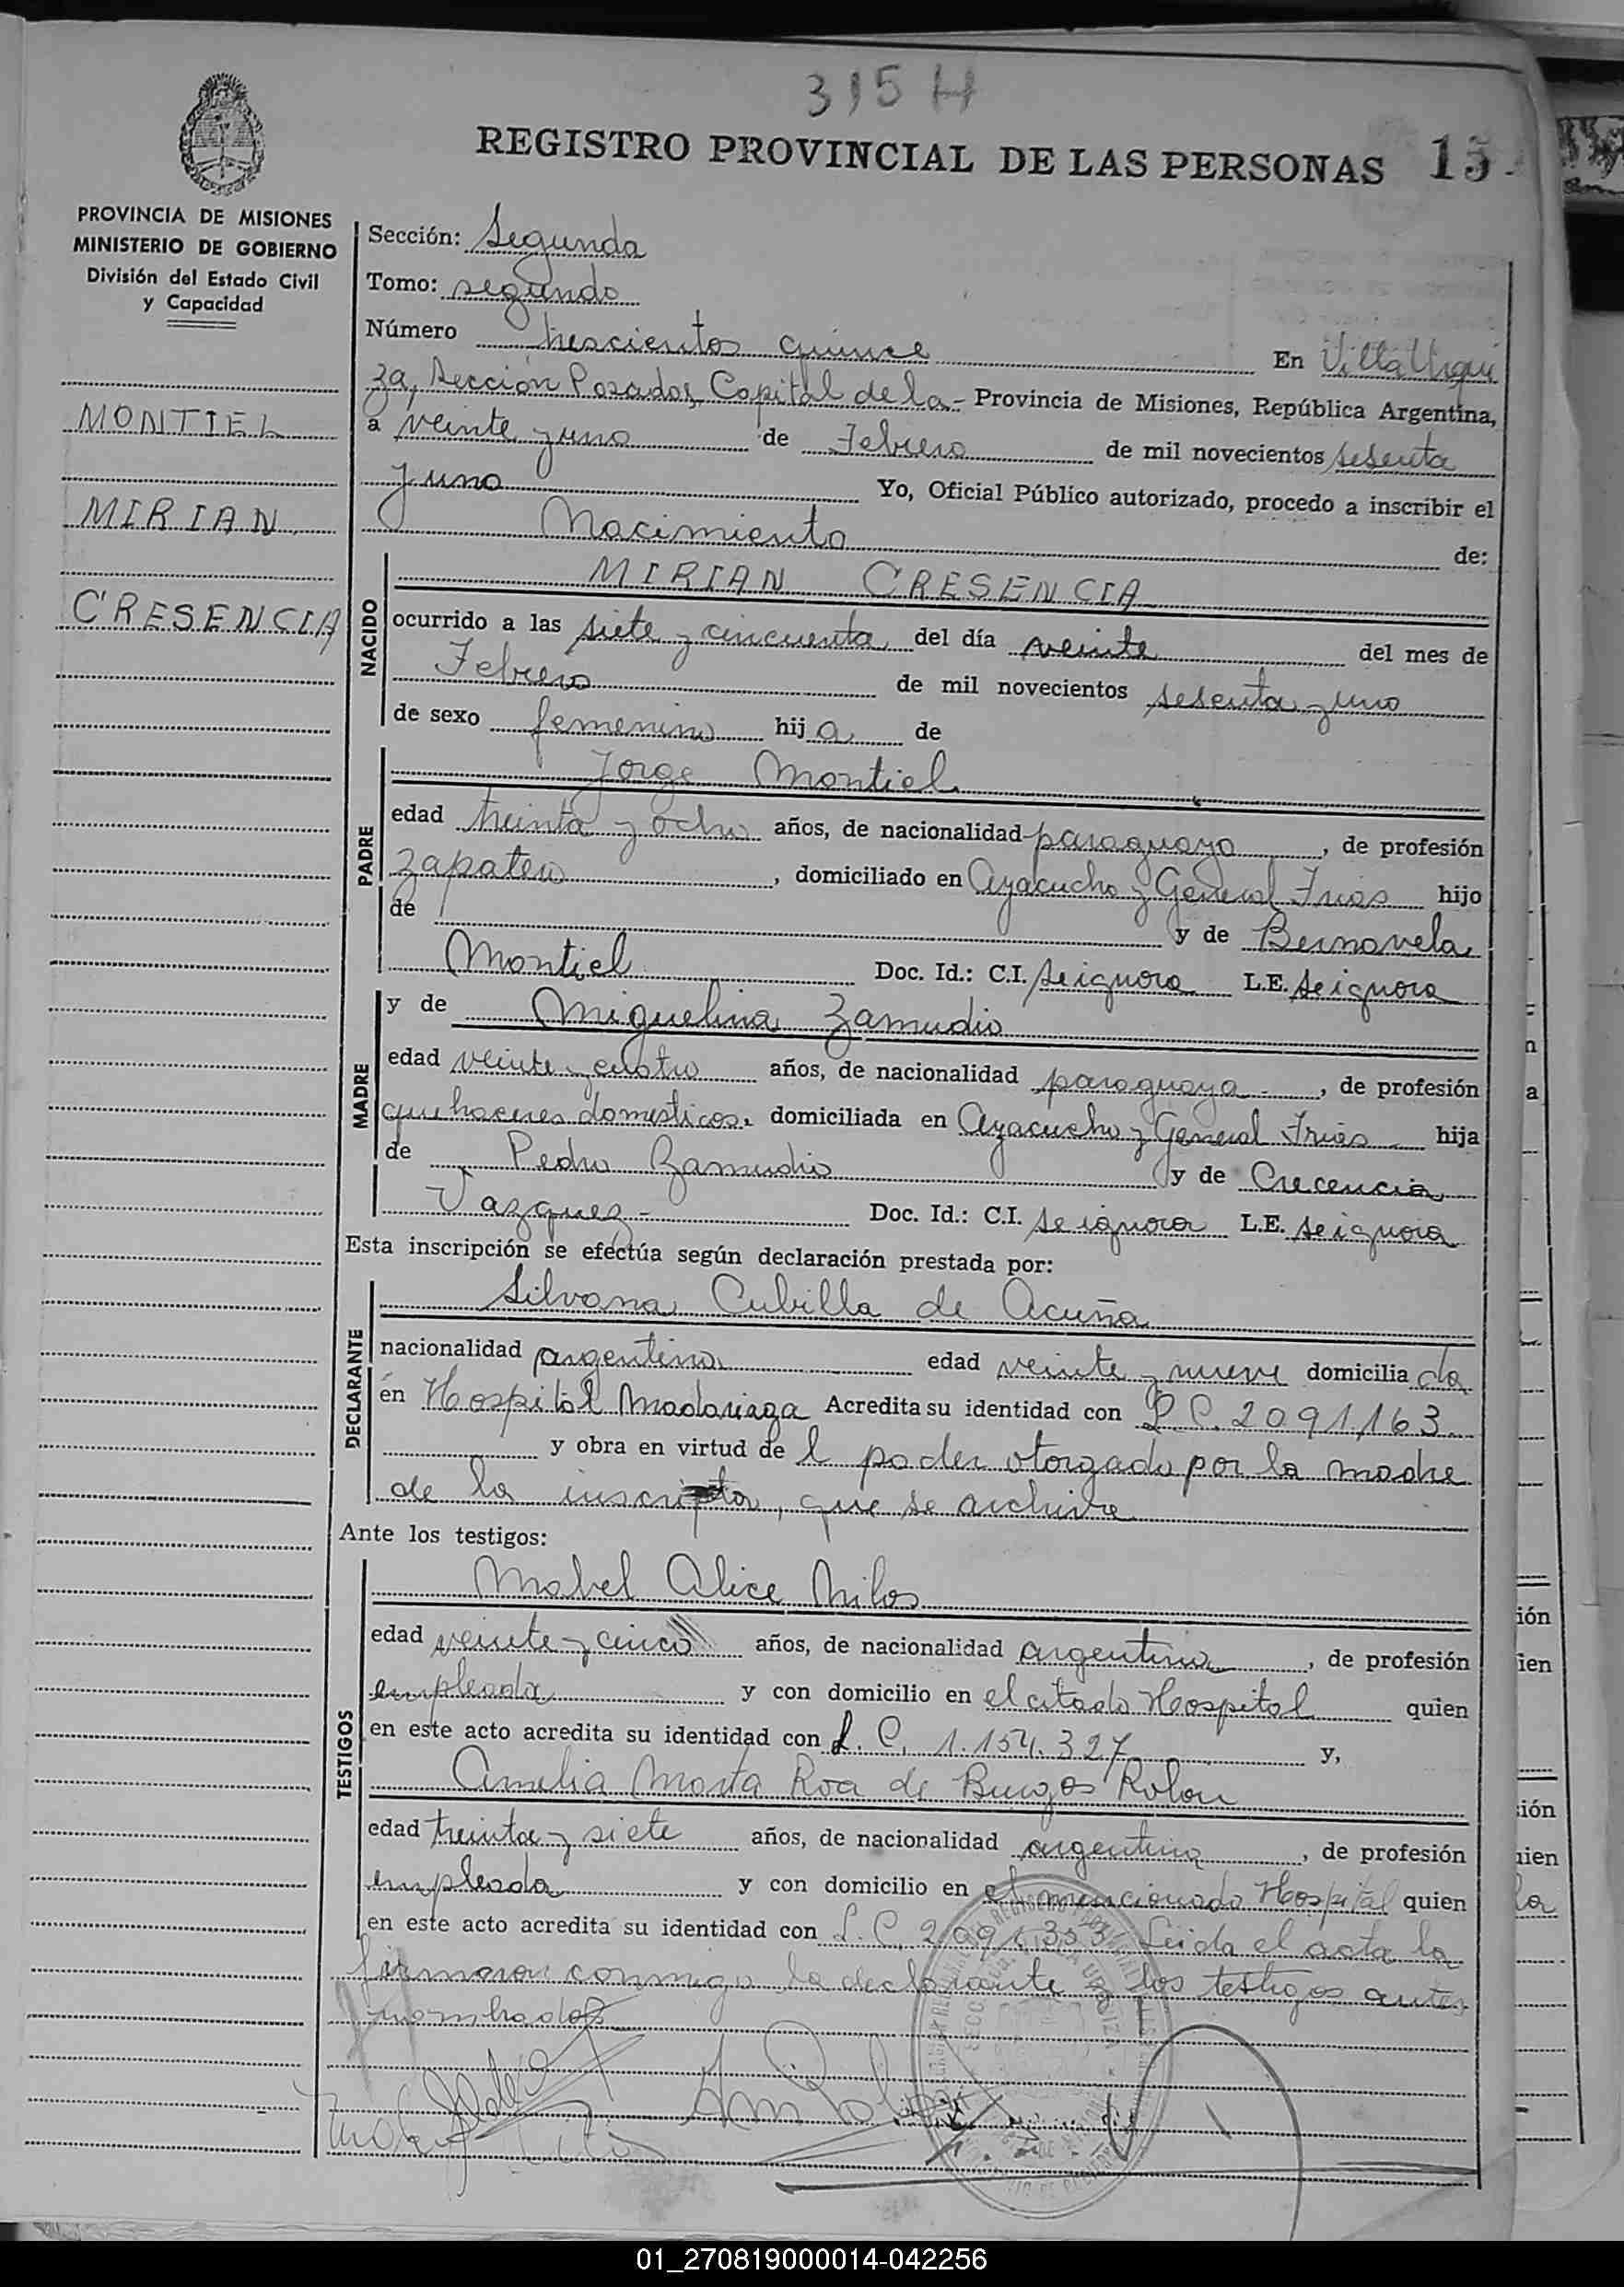 315 H
REGISTRO PROVINCIAL DE LAS PERSONAS 15
PROVINCIA DE MISIONES
MINISTERIO DE GOBIERNO
División del Estado Civil
y Capacidad
MONTIEL
MIRIAN
CRESENCIA
Sección: Segunda
Tomo: segundo
Número trescientos quince En Villa Urqui
za, Sección Posadas, Capital de la - Provincia de Misiones, República Argentina,
a veinte y uno de Febrero de mil novecientos sesenta
y uno Yo, Oficial Público autorizado, procedo a inscribir el
Nacimiento de:
NACIDO
MIRIAN CRESENCIA
ocurrido a las siete y cincuenta del día veinte del mes de
Febrero de mil novecientos sesenta y uno
de sexo femenino hija de
PADRE
Jorge Montiel
edad treinta y ocho años, de nacionalidad paraguaya, de profesión
zapatero, domiciliado en Ayacucho y General Frias hijo
de y de Bernavela
Montiel Doc. Id.: C.I. se ignora L.E. se ignora
MADRE
y de Miguelina Zamudio
edad veinte y cuatro años, de nacionalidad paraguaya -, de profesión
quehaceres domesticos, domiciliada en Ayacucho y General Frias hija
de Pedro Zamudio y de Crecencia
Vazquez - Doc. Id.: C.I. se ignora L.E. se ignora
Esta inscripción se efectúa según declaración prestada por:
DECLARANTE
Silvana Cubilla de Acuña
nacionalidad argentina edad veinte y nueve domiciliada
en Hospital Madariaga Acredita su identidad con L.C. 2091163
y obra en virtud del poder otorgado por la madre
de la inscripta, que se archiva
Ante los testigos:
TESTIGOS
Mabel Alice Milos
edad veinte y cinco años, de nacionalidad argentina, de profesión
empleada y con domicilio en el citado Hospital quien
en este acto acredita su identidad con L.C. 1.154.327 y,
Amelia Marta Roa de Burgos Rolon
edad treinta y siete años, de nacionalidad argentina, de profesión
empleada y con domicilio en el mencionado Hospital quien
en este acto acredita su identidad con L.C. Leida el acta la
firmaron conmigo la declarante y los testigos antes
nombrados
01_270819000014-042256